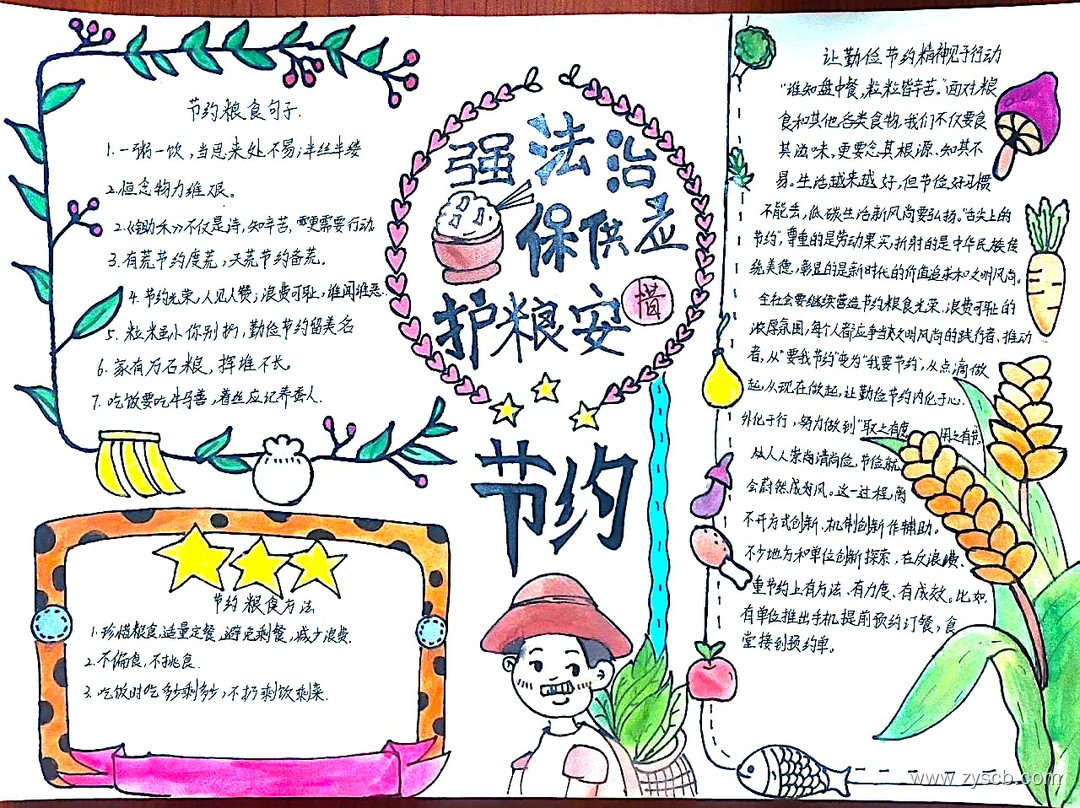 节约粮食句子.
1.一粥一饮,当思来处不易;半丝半缕
2.恒念物力维艰。
2.《锄禾》不仅是诗,知辛苦,更需要行动
3.有荒节约度荒,无荒节约备荒。
4.节约光荣,人见人赞;浪费可耻,谁闻谁恶.
5.粒米虽小你别扔,勤俭节约留美名
6.家有万石粮,挥堆不长.
7.吃饭要吃牛马善,着丝应记养蚕人.
强法治
保供足
护粮安
惜
节约
节约粮食方法
1.珍惜粮食,适量定餐,避免剩餐,减少浪费.
2.不偏食,不挑食.
3.吃饭时吃多少剩多少,不扔剩饭剩菜.
让勤俭节约精神见于行动
“谁知盘中餐,粒粒皆辛苦。”面对粮
食和其他各类食物,我们不仅要食
其滋味,更要念其根源、知其不
易。生活越来越好,但节俭好习惯
不能丢,低碳生活新风尚要弘扬。“舌尖上的
节约”,尊重的是劳动果实,折射的是中华民族传
统美德,彰显的是新时代的价值追求和文明风尚。
全社会要继续营造节约粮食光荣、浪费可耻的
浓厚氛围,每个人都应争当文明风尚的践行者、推动
者,从“要我节约”变为“我要节约”,从点滴做
起,从现在做起,让勤俭节约内化于心、
外化于行,努力做到“取之有度、用之有节
从人人崇尚清尚俭,节俭就
会蔚然成为风。这一过程,离
不开方式创新、机制创新作辅助。
不少地方和单位创新探索,在反浪费、
重节约上有方法、有力度、有成效。比如
有单位推出手机提前预约订餐,食
堂接到预约单。
www.zyscb.com